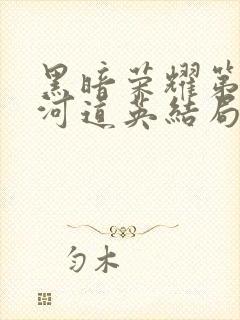 黑暗荣耀第
河道英结局
匀木